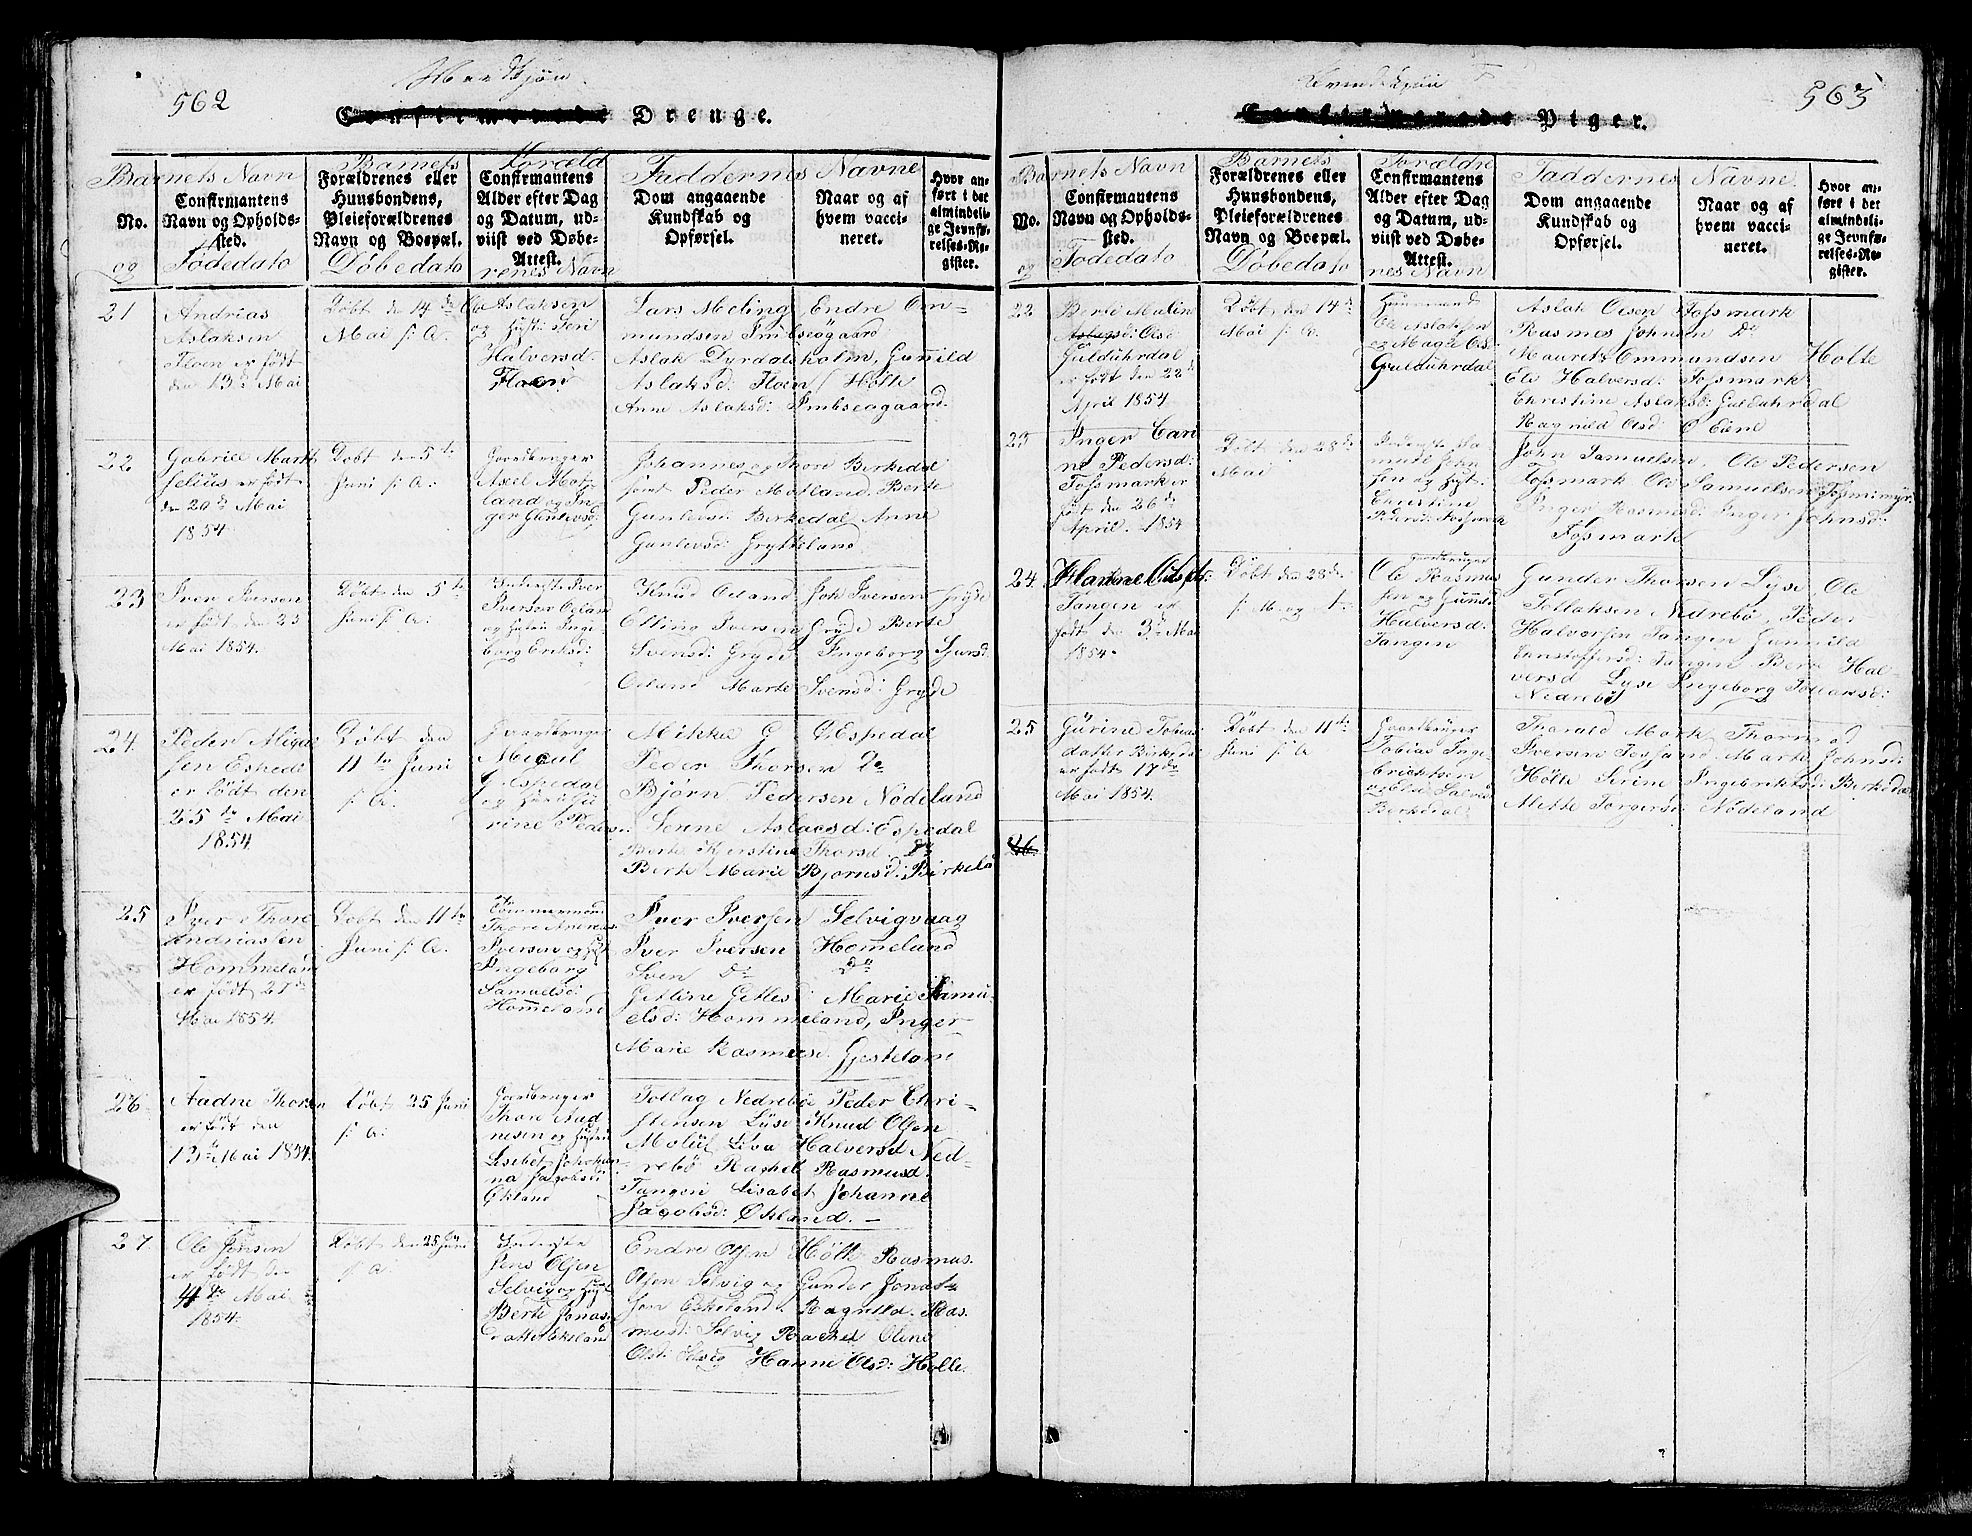 562
Drenge.
Barnets Navn
No.
og
Confirmantens
Navn og Opholds-
sted.
Födedato
Barnets
Forældrenes eller
Huusbondens,
Pleieforældrenes
Navn og Boepæl.
Döbedato
Foræld
Confirmantens
Alder efter Dag
og Datum, ud-
viist ved Døbe-
Attest.
renes Navn
Faddernes Navne
Dom angaaende
Kundskab og
Opførsel.
Naar og af
hvem vacci-
neret.
Hvor an-
ført i det
almindeli-
ge Jevnfø-
relses-Re-
gister.
21
Andrias
Aslaksen
Floen er födt
den 13de Mai
Döbt de 14de
Mai s: A:
Ole Aslaksen
og Hust: Seri
Halversd.
Floen
Lars Meling Endre Om-
mundsen Imbseögaard
Aslak Dyrdalsholm, Gunild
Aslaksd: Floen / Holte
Anne Aslaksd: Imbseogaard
22
Gabriel Marth
selius er födt
den 20de Mai
1854
Döbt den 5te
Juni s: A:
Gaardbruger
Axel Mot-
land og In-
ger Gunlevsd:
Johannes og Thore Berkedal
samt Peder Motland. Berte
Gunlevsd: Berkedal Anne
Gunlevsd: Grytteland
23
Iver Iversen
er födt den 23
Mai 1854.
Döbt den 5te
Juni s: A:
Inderste Iver
Iversen Oeland
og Hustru Inge-
borg Eriksd:
Knud Oeland Joh Iversen Gryde
Elling Iversen Gryde Berte
Svensd: Gryde Ingeborg Sjursd:
Oeland Marte Svensd: Gryde
24
Peder Migel
sen Espedl
er födt den
25te Mai
1854
Döbt den
11te Juni
s: A:
Gaardbruger
Micul
G Espedal
og Hustru Gu
rine Peders:
Mikkel G Espedal
Peder Thorsen do
Björn Pedersen Nödeland
Serine Aslacsd: Espedal
Berte Kjerstine Thorsd do
Berte Marie Bjornsd: Birkelad
25
Iver Thore
Andriassen
Hommeland
er födt 21de
Mai 1854.
Döbt den 11te
Juni s: A:
Tömmermand
Thore Andreas
Iversen og Hust
Ingeborg
Samuelsd:
Hommeland
Iver Iversen Selvigvaag
Iver Iversen Hommeland
Sven do do
Getline Getlesd Marie Samu-
elsd: Hommeland, Inger
Marie Rasmusd: Gjesteland
26
Aadne Thorsen
er födt den
13de Mai 1854.
Döbt 25 Juni
s: A:
Gaardbruger
Thore Aad
nesen og Hustru
Lisebet Johan
na Jacobsd:
Ökland
Tollag Nedrebö Peder Chri-
stensen Lyse Knud Olsen
Molül Liva Halversd Ned-
rebö Rachel Rasmusd:
Tangen Lisabet Johanne
Jacobsd: Ökland. —
27
Ole Jonsen
er födt den
4de Mai
1854.
Döbt den 25 Juni
s: A:
Inderste
Jens Olsen
Selvig og Hust
Berte Jonas-
datter Eskeland
Endre Olsen Hölte Rasmus
Olsen Selvig og Gunder Jonas
sen Eskeland. Ragnild Ras
musd: Selvig Rachel Oline
Olsd: Selvig Hanne Olsd: Holle.
563
Piger.
Barnets Navn
No.
og
Confirmantens
Navn og Opholds-
sted.
Födedato
Barnets
Forældrenes eller
Huusbondens,
Pleieforældrenes
Navn og Boepæl.
Döbedato
Forældre
Confirmantens
Alder efter Dag
og Datum, ud-
viist ved Døbe-
Attest.
nes Navn
Faddernes Navne
Dom angaaende
Kundskab og
Opførsel.
Naar og af
hvem vacci-
neret.
Hvor an-
ført i det
almindeli-
ge Jevnfø-
relses-Re-
gister.
22
Berte Malin
Olsd
Gulduhrdal
er födt den 22de
April 1854
Döbt den 14de
Mai s: A:
Huusmand
Ole Aslaksen
og Magle Ols
Gulduhrdal
Aslak Olsen Fossmark
Rasmus Johnsen do
Mauret Ommundsen Holte
Ele Halversd: Fossmark
Christine Aslaksd: Gulduhrdal
Ragnild Olsd: Eiene
23
Inger Cari
ne Pedersd:
Fossmark er
födt den 26de
April. 1854
Döbt den 28de
Mai
Inderste
John
sen og Hust.
Christine
Pedersd: Fossmark
John Samuelsen, Ole Pedersen
Fossmark Ole Samuelsen Fossmimyr
Inger Rasmusd: Inger Johnsd:
Fossmark
24.
Tangen er
födt den 3de Mai
1854
Döbt den 28de
s: M og A:
Gaardbruger
Ole Rasmus
sen og Gunild
Halversd:
Tangen
Gunder Thorsen Lyse, Ole
Tollaksen Nedrebö, Peder
Halvorsen Tangen Gunnild
Christoffersd: Tangen Berte Hal-
versd Lyse Ingeborg Tollaksd:
Nedrebö
25
Gürine Tobias
datter Birkeda
er födt 17de
Mai 1854.
Döbt den 11te
Juni s: A
Gaardbruger
Tobias Inge-
brichtsen
og Else Salves
Berkedal:
Tharald Mork Thormod
Iversen Fossand Marte Johnsd:
Hölte Serine Ingebriktsd: Berkeda
Mette Torgersd Nödeland
26.